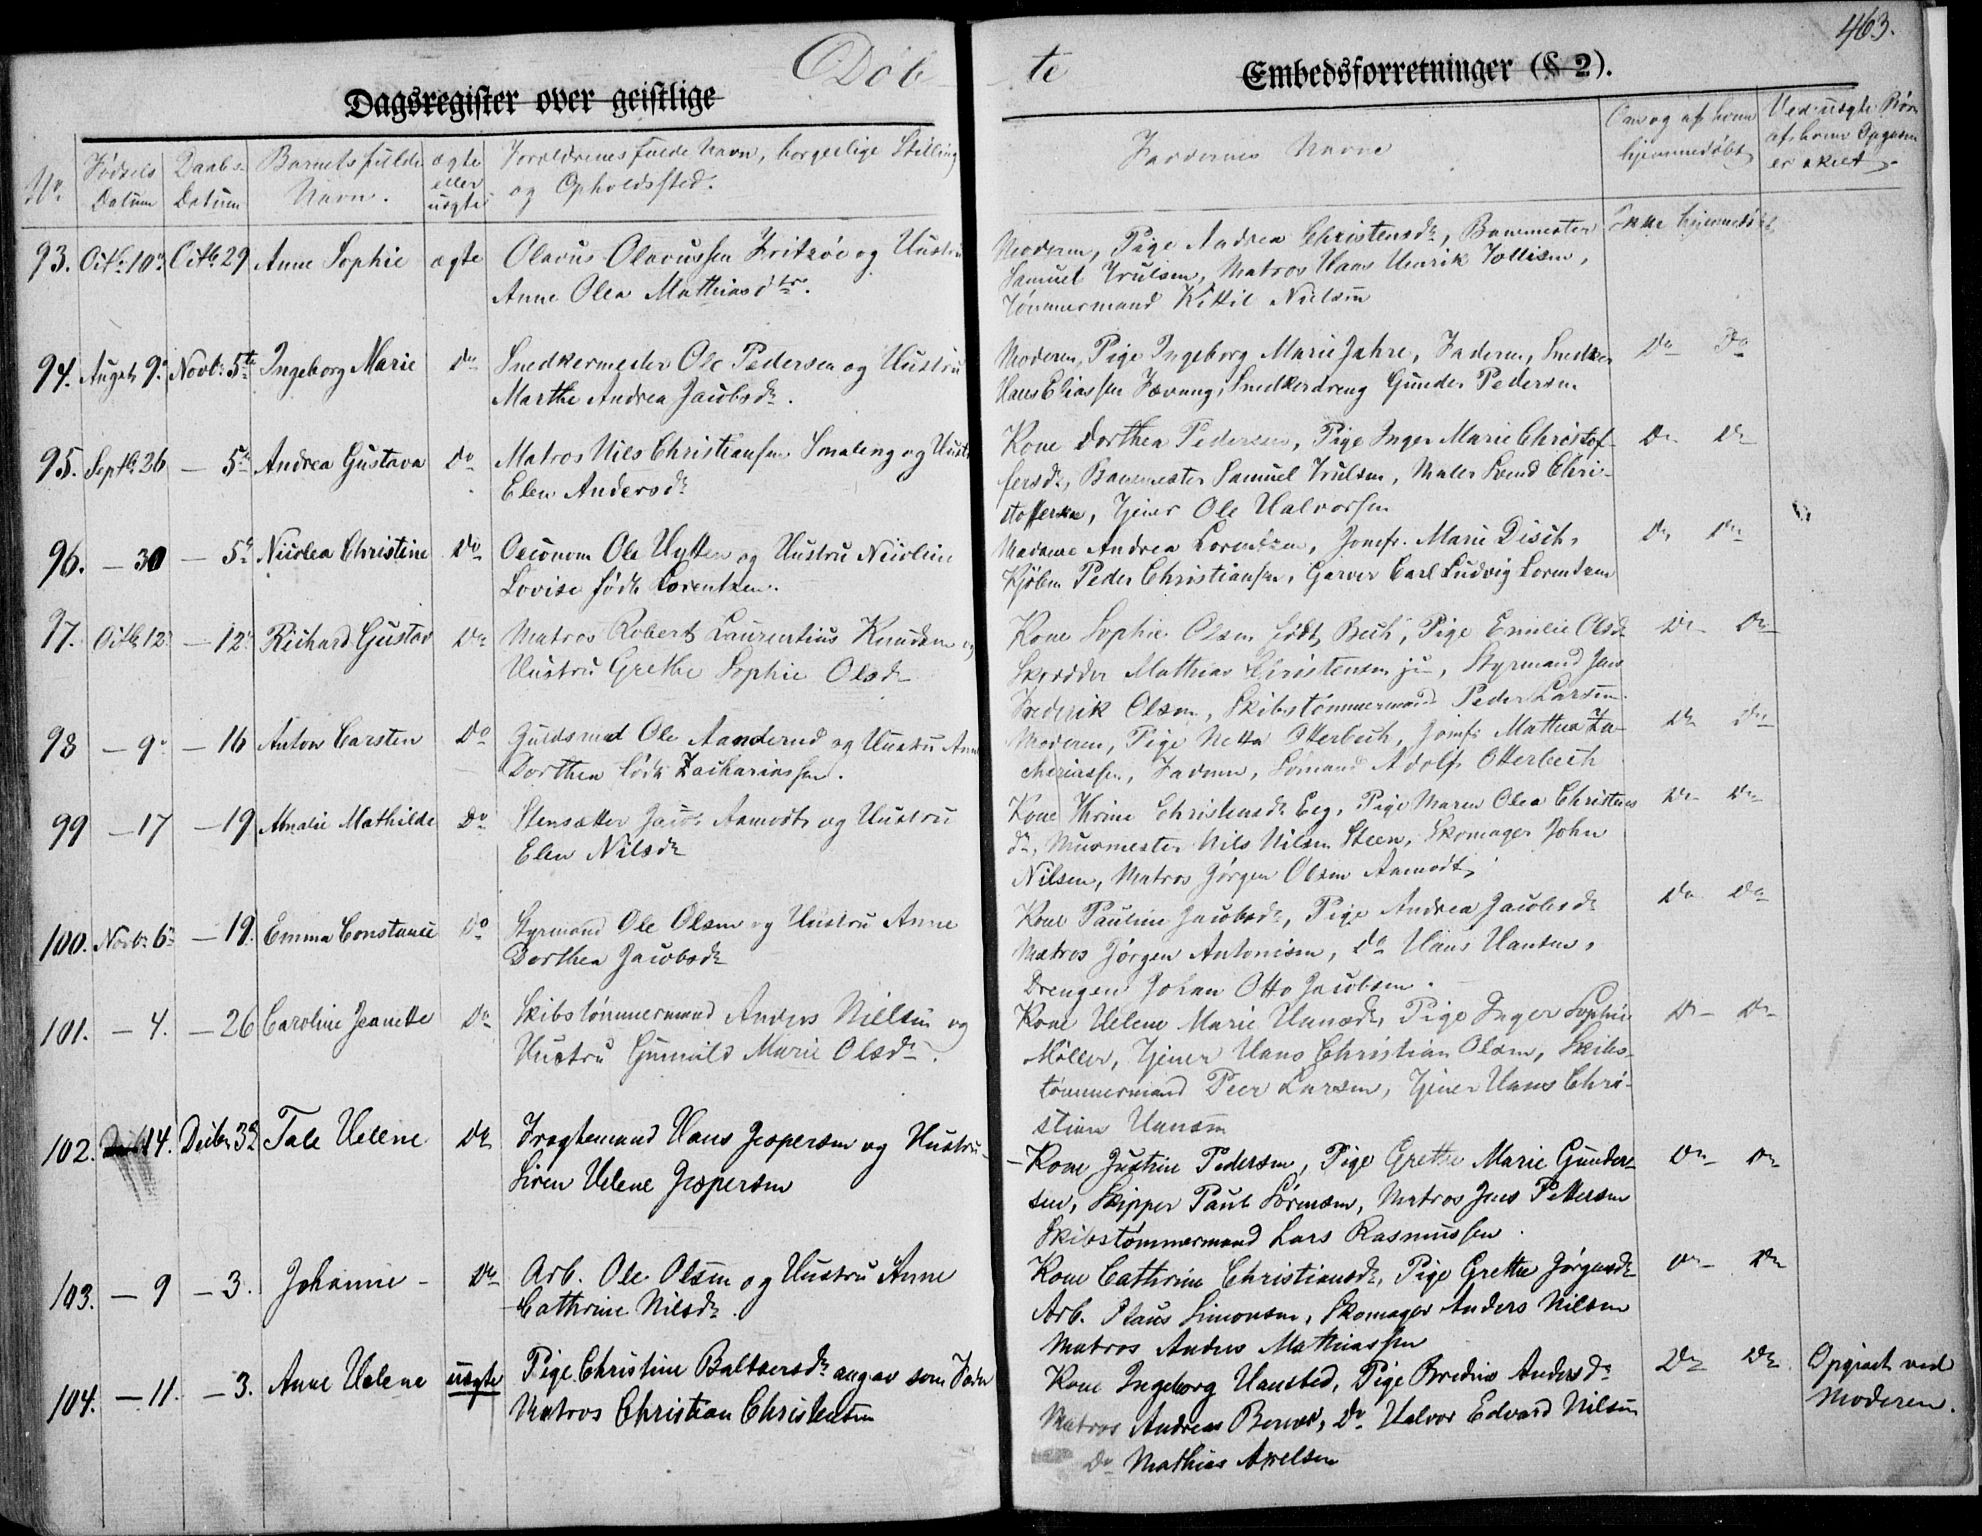 463.
Döb te
Dagsregister over geistlige Embedsforretninger (§ 2).
No. Fødsels Datum Daabs Datum Barnets fulde Navn. ægte eller uægte Forældrenes fulde Navn, borgerlige Stilling og Opholdssted.
Faddernes Navne Om og af hvem hjemmedøbt Ved uægte Børn af hvem Opgaven er skeet
93. Octb. 10. Octb. 29 Anne Sophie ægte Olavus Olavussen Fritzöe og Hustru
Anne Olea Mathiasdtr.
Moderen, Pige Andrea Christensdr, Banemester Ikke hjemmedöbt
Samuel Trulsen, Matros Hans Henrik Tollisen,
Tömmermand Kittil Nielsen
94. Augst. 9. Novb. 5te Ingeborg Marie Do Snedkermester Ole Pedersen og Hustru
Marthe Andrea Jacobsdr.
Moderen, Pige Ingeborg Marie Jahre, Faderen, Snedker Do Do
Hans Eliassen Fevang, Snedkerdreng Gunder Pedersen
95. Septb. 26 — 5te Andrea Gustava Do Matros Nils Christiansen Smaleng og Hustr
Elen Andersdr
Kone Dorthea Pedersen, Pige Inger Marie Christof- Do Do
fersdr, Banemester Samuel Trulsen, Maler Svend Chri-
stoffersen, Tjener Ole Halvorsen
96. — 30 — 5te Nicolea Christine Do Oeconom Ole Hytten og Hustru Nicoline
Lovise födt Lorentzen.
Madame Andrea Lorentzen, Jomfr. Marie Disch, Do Do
Kjöbm Peder Christiansen, Garver Carl Ludvig Lorentzen
97. Octb. 12 — 12 Richard Gustav Do Matros Robert Laurentius Knudsen og
Hustru Grethe Sophie Olsdr
Kone Sophie Olsen födt Bech, Pige Emilie Olsdr Do Do
Skrædder Mathias Christensen jr, Styrmand Jens
Frederik Olsen, Skibstömmermand Peder Larsen.
98 — 9. — 16 Anton Carsten Do Guldsmed Ole Aanderud og Hustru Anne
Dorthea födt Zachariassen.
Moderen, Pige Netta Otterbech, Jomfr Mathea Za- Do Do
chariassen, Faderen, Sömand Adolf Otterbech
99 — 17 — 19 Amalie Mathilde Do Stensætter Jacob Aamodt og Hustru
Elen Nilsdr
Kone Thrine Christensdr Eeg, Pige Maren Olea Christens Do Do
dr, Murmester Nils Nilsen Steen, Skomager John
Nilsen, Matros Jörgen Olsen Aamodt,
100. Novb. 6 — 19. Emma Constance Do Styrmand Ole Olsen og Hustru Anne
Dorthea Jacobsdr
Kone Pauline Jacobsdr, Pige Andrea Jacobsdr Do Do
Matros Jörgen Antonisen, Do Hans Hansen,
Drengen Johan Otto Jacobsen.
101. — 4. — 26 Caroline Jeanette Do Skibstömmermand Anders Nielsen og
Hustru Gunnild Marie Olsdr.
Kone Helene Marie Hansdr, Pige Inger Sophie Do Do
Möller, Tjener Hans Christian Olsen, Skibs-
tömmermand Peer Larsen, Tjener Hans Chri-
stian Hansen
102. 14. Decbr 3die Tale Helene Do Fragtemand Hans Jespersen og Hustru
Siren Helene Jespersen
Kone Justine Pedersen, Pige Grethe Marie Gunder- Do Do
sen, Skipper Paul Sörensen, Matros Jens Pettersen
Skibstömmermand Lars Rasmussen.
103. — 9 — 3. Johanne Do Arb. Ole Olsen og Hustru Anne
Cathrine Nilsdr.
Kone Cathrine Christiansdr, Pige Grethe Jörgensdr Do Do
Arb. Claus Simonsen, Skomager Anders Nilsen
Matros Anders Mathiassen
104. — 11. — 3. Anne Helene uægte Pige Christine Baltzersdr angav som Fader
Matros Christian Christensen
Kone Ingeborg Hansted, Pige Bredine Andersdr Do Do Opgivet ved
Matros Andreas Berner, Do Halvor Edvard Nilsen Moderen.
Do Mathias Axelsen